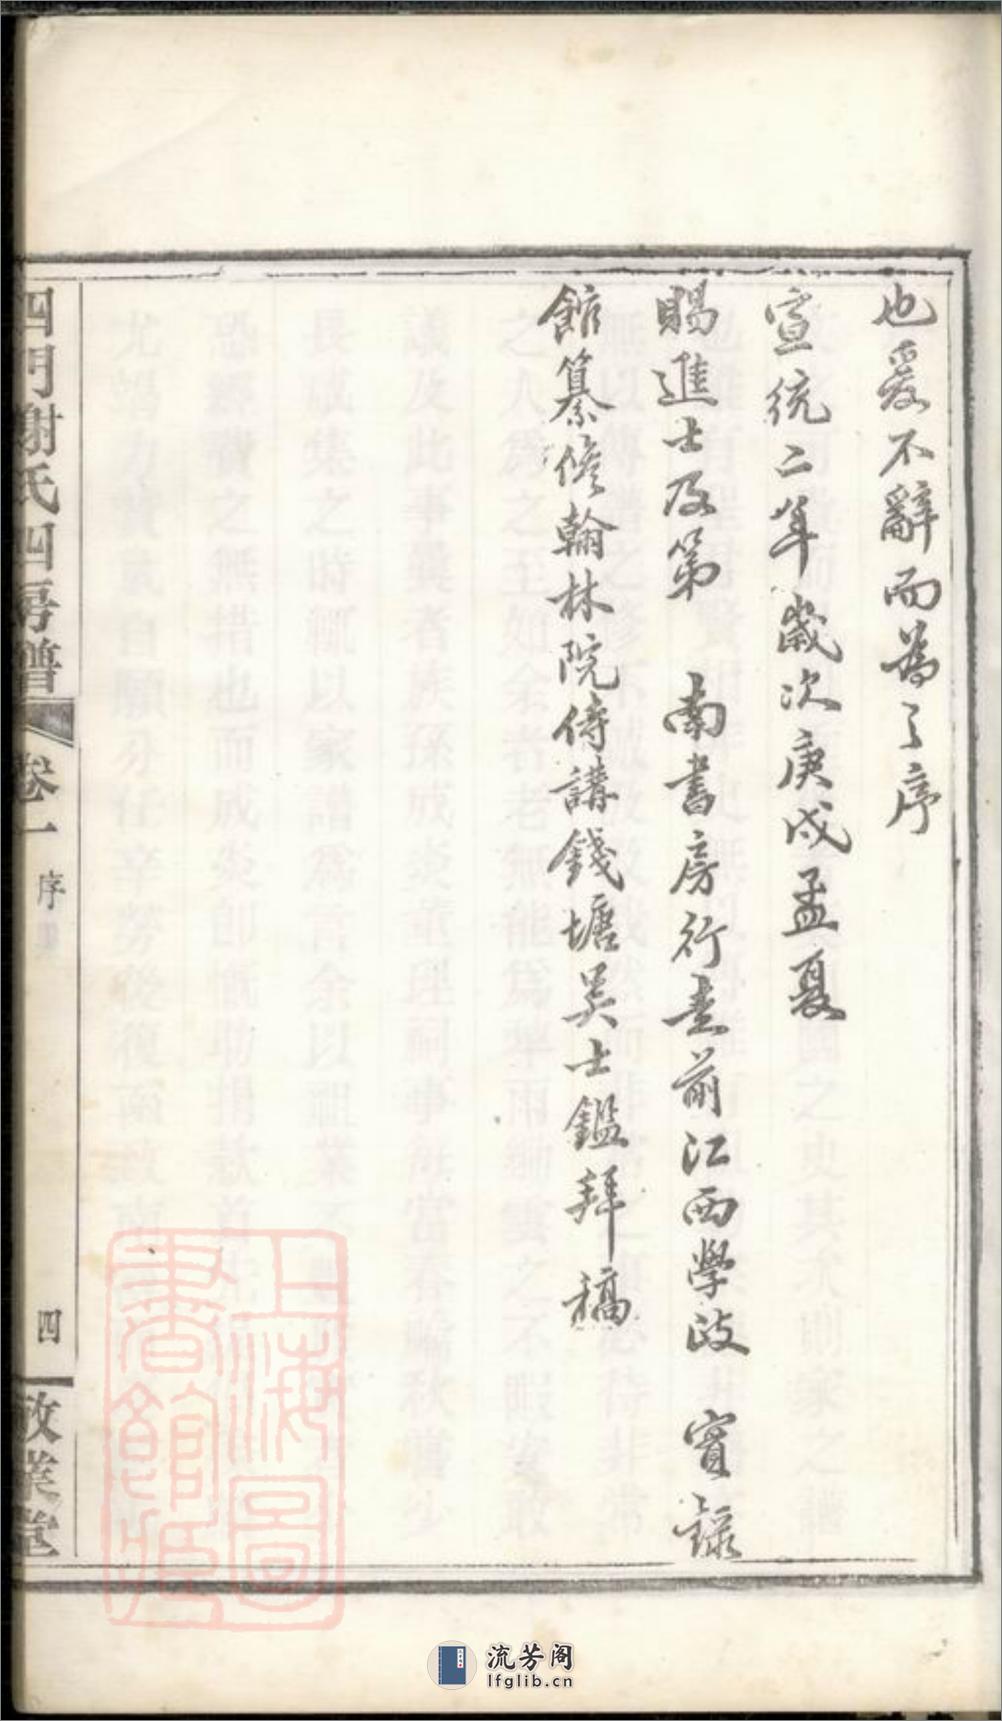 也爰不辭而為之序
宣統二年歲次庚戌孟夏
賜進士及第 南書房行走前江西學政 實錄
館纂修翰林院侍講錢塘吳士鑑拜稿
四門謝氏四房譜 卷一 序 四 敦業堂
上海圖書館藏
流芳阁
lfglib.cn